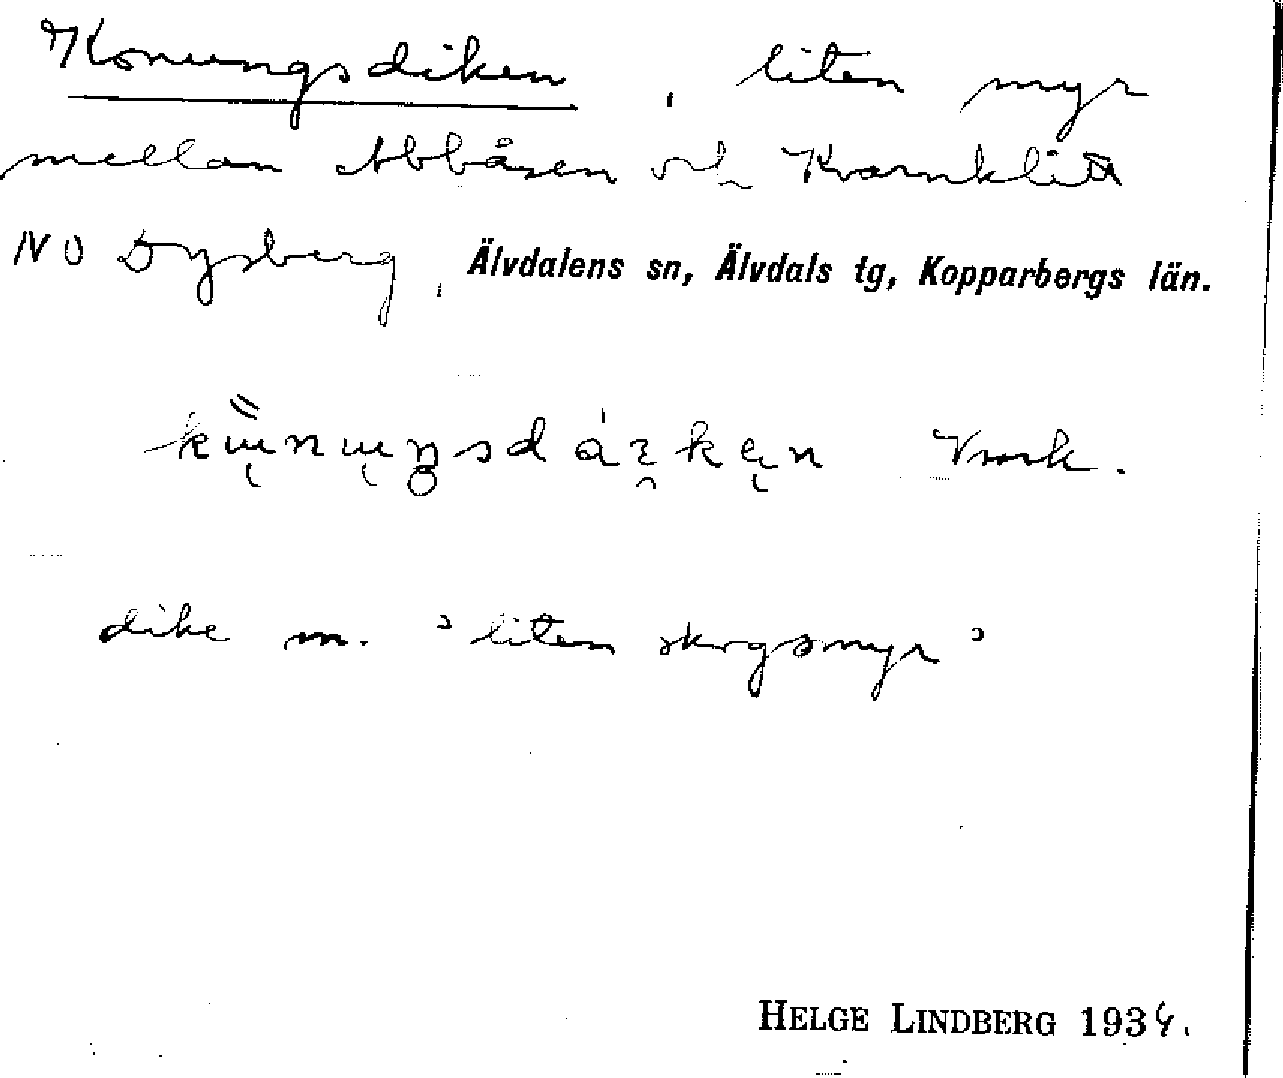 Konungsdiken, liten myr
mellan Abbåsen och Kvarnklitt
NO Dysberg, Älvdalens sn, Älvdals tg, Kopparbergs län.
dike m. "liten skogsmyr"
HELGE LINDBERG 1934.